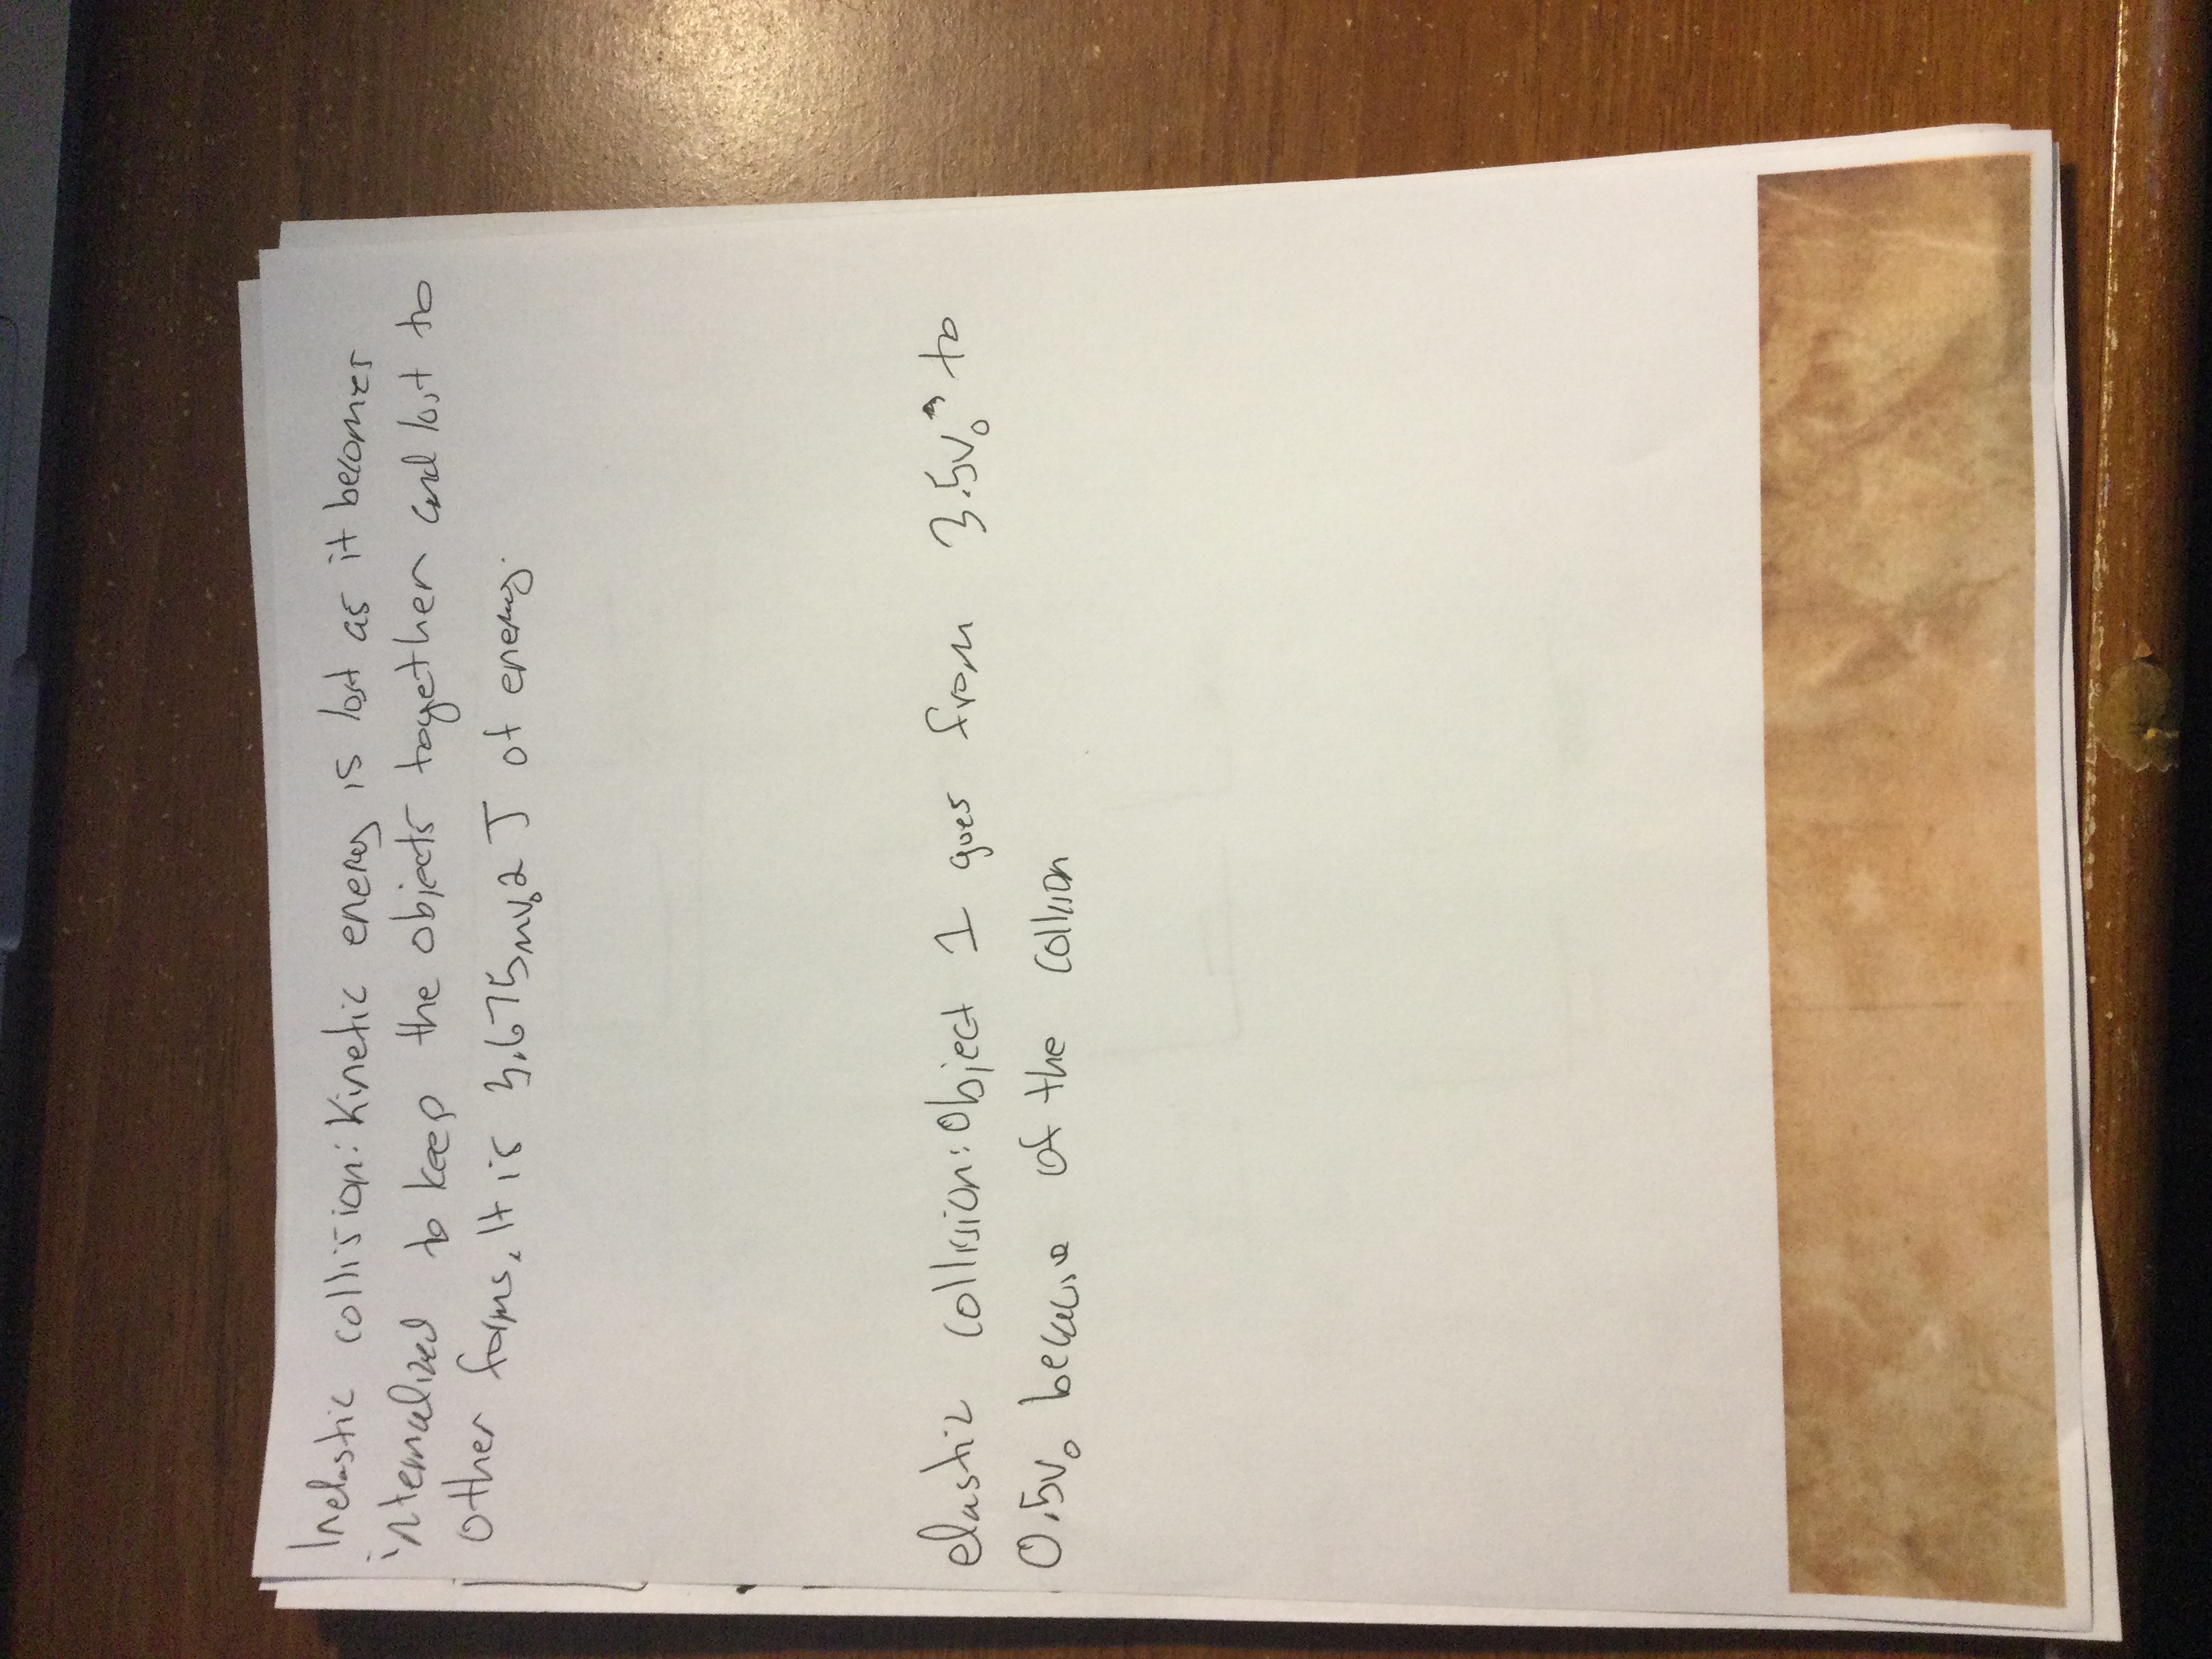 Inelastic collision: Kinetic energy is lost as it becomes
internalized to keep the objects together and lost to
other forms. It is 3.675mv₀2 J of energy.
elastic collision: Object 1 goes from 3.5v₀ to
0.5v₀ because of the collison